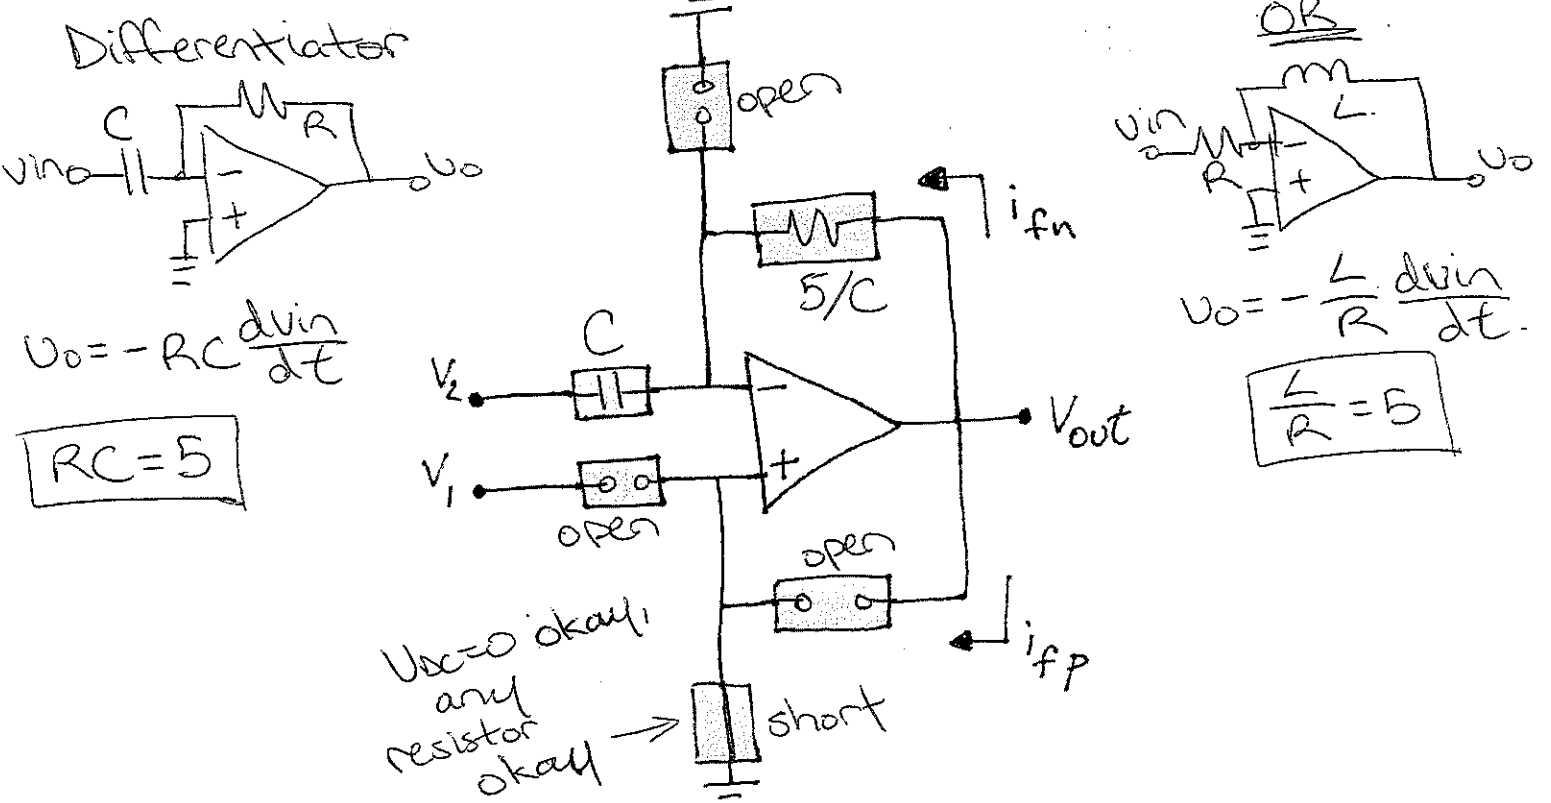 Differentiator
C
R
vin
vo
−
+
vo = −RC dvin/dt
RC = 5
open
i fn
5/C
C
V2
V1
−
+
Vout
open
open
i fp
VDC=0 okay,
any
resistor
okay
short
OR
L
vin
R
−
+
vo
vo = − L/R dvin/dt.
L/R = 5